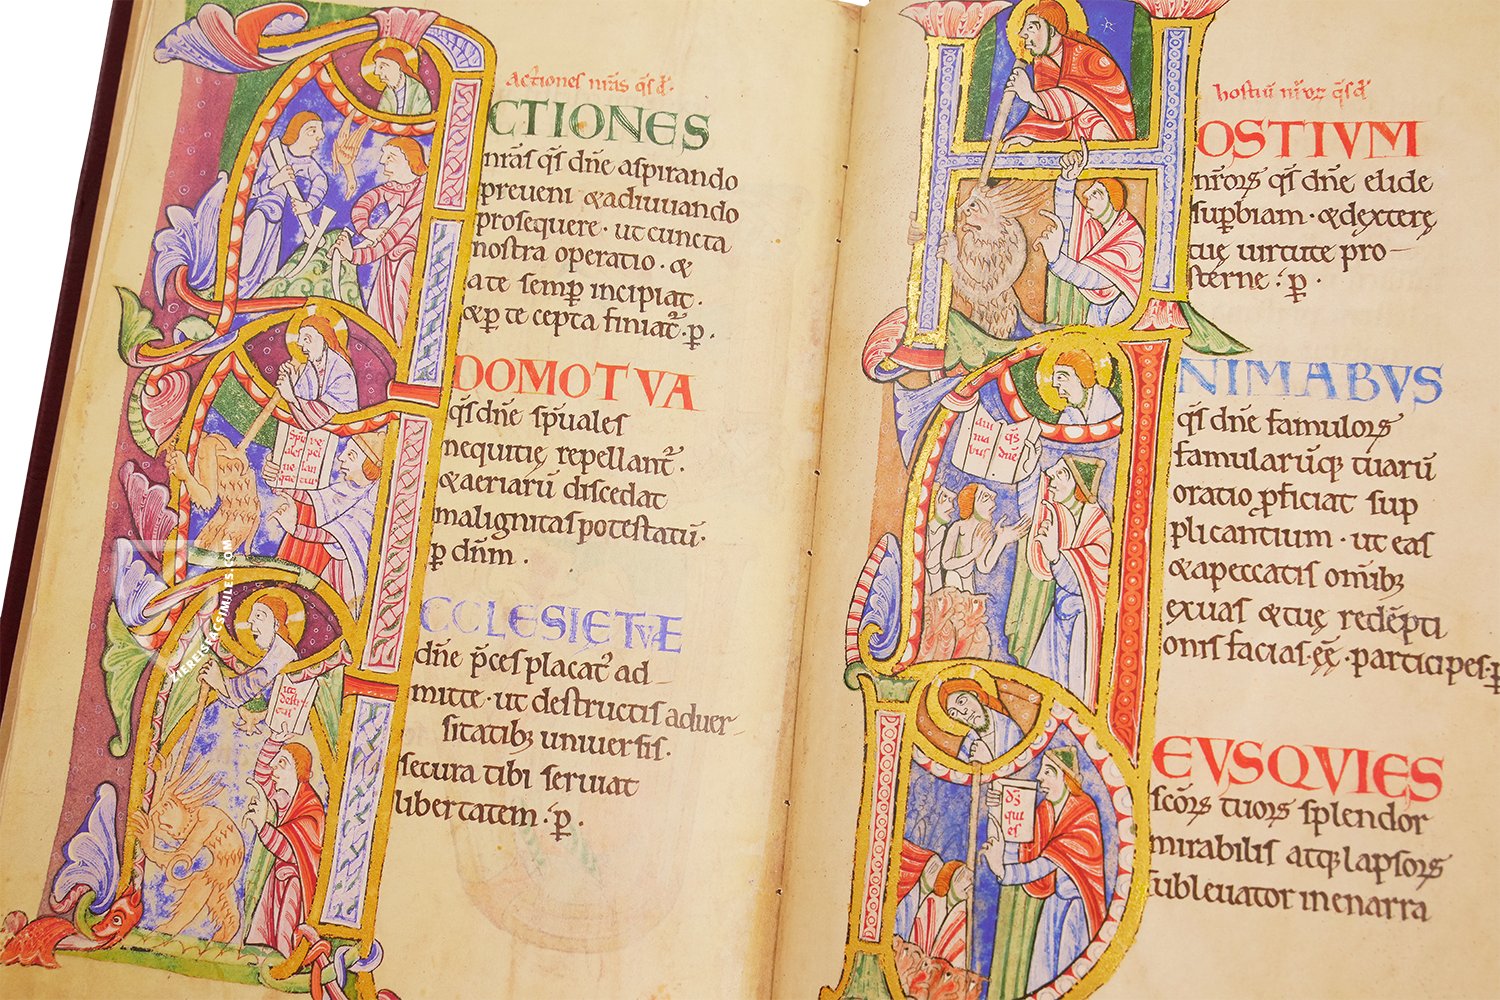 actiones nr̄as q̄s d̄.
CTIONES
nr̄as q̄s dn̄e aspirando
preueni &adiuuando
prosequere · ut cuncta
nostra operatio · &
a te semp̲ incipiat ·
&p̲ te cepta finiat̄ · p̲ ·
DOMOTVA
q̄s dn̄e sp̄uales
nequitię repellant̄ ·
&aeriarū discedat
malignitas potestatū ·
p̲ dn̄m .
spu ales ne quit
re pel lan tur
CCLESIĘTVĘ
dn̄e p̄ces placat᷒ ad
mitte · ut destructis aduer-
sitatibꝫ uniuersis ·
secura tibi seruiat
libertatem · p̲ ·
ut destru ctis
hostiū nr̄oꝝ q̄s d̄
OSTIVM
nr̄oꝝ q̄s dn̄e elide
sup̲biam · &dexterę
tuę uirtute pro-
sterne · p̲ ·
NIMABVS
q̄s dn̄e famuloꝝ
famularūqꝫ tuarū
oratio ꝓficiat sup
plicantium · ut eas
&apeccatis om̄ibꝫ
exuas &tuę redēpti
onis facias eę̄ · participes · p̲
ani ma bus
q̄s dn̄e
EVSQVIES
sc̄oꝝ tuoꝝ splendor
mirabilis atqꝫ lapsoꝝ
subleuator inenarra
d̄s qui es
ZIEREISFACSIMILES.COM